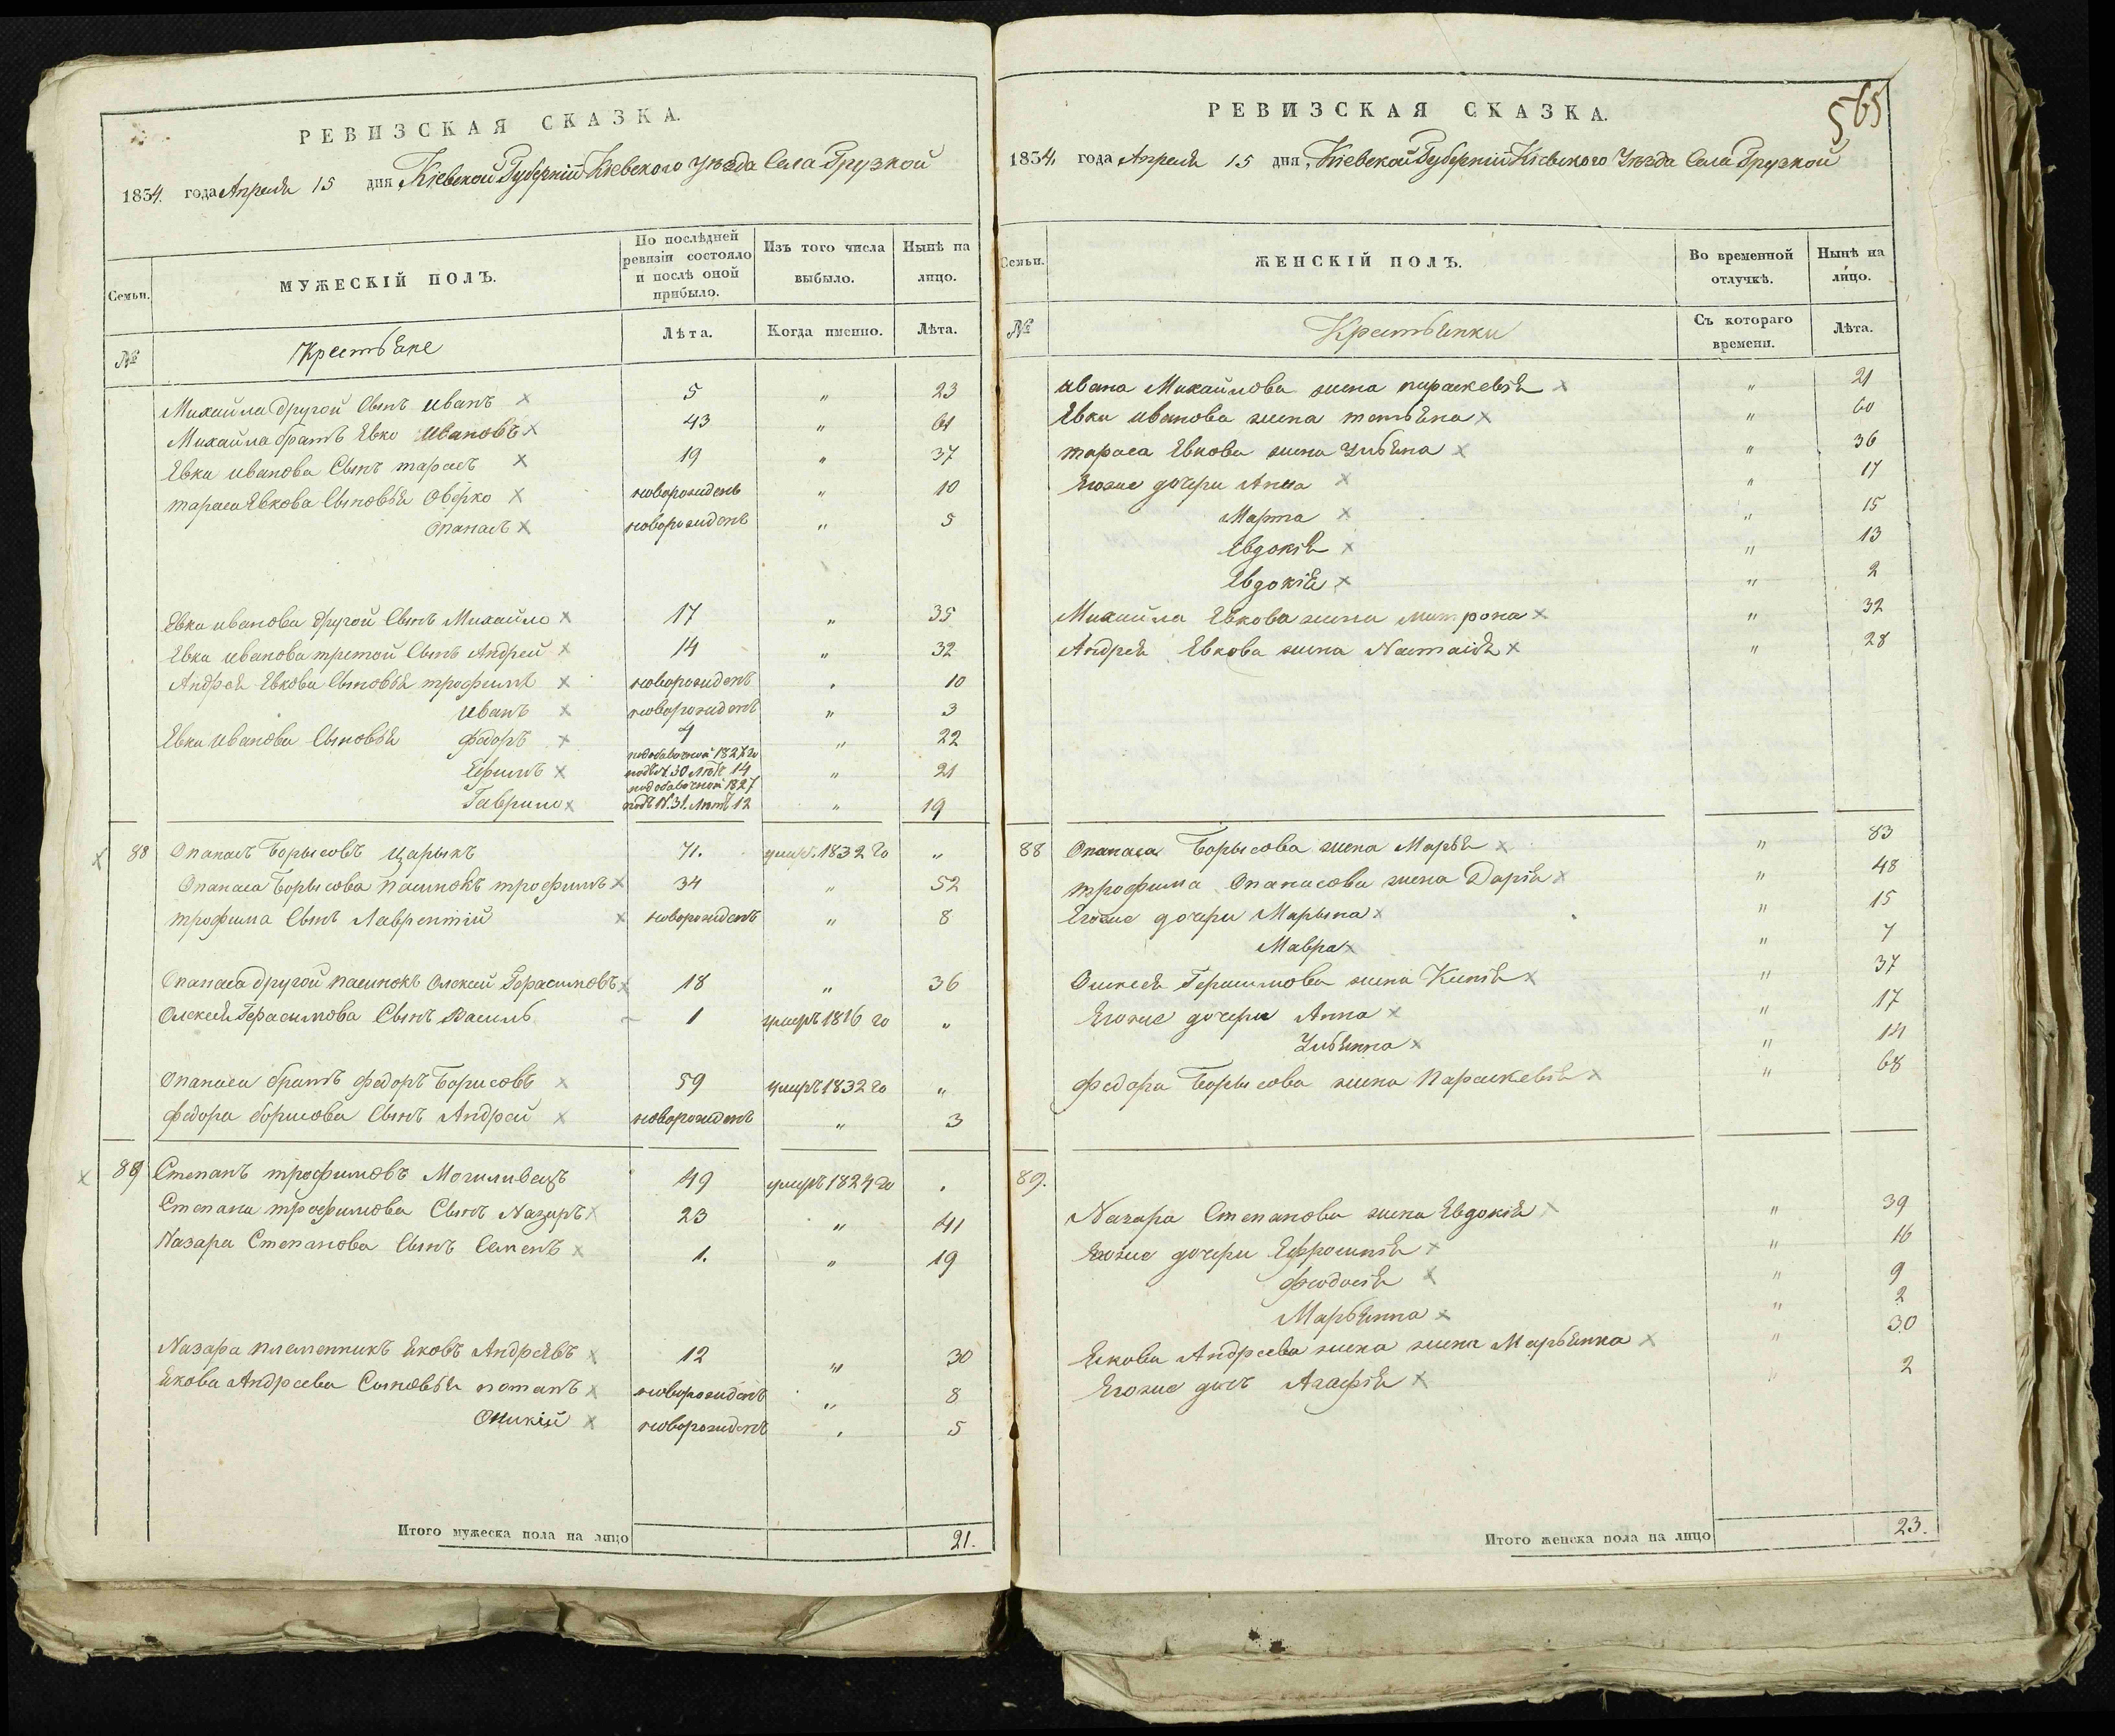 РЕВИЗСКАЯ СКАЗКА.
1834. года Апреля 15 дня, Кіевской Губерніи Кіевского Уѣзда Села Грузкой
Семьи.
МУЖЕСКІЙ ПОЛЪ.
По послѣдней ревизіи состояло и послѣ оной прибыло.
Изъ того числа выбыло.
Нынѣ на лицо.
№
Крестьяне
Лѣта.
Когда именно.
Лѣта.
Михайла другой Сынъ иванъ × 5 " 23
Михайла братъ Евко Ивановъ × 43 " 61
Евка иванова Сынъ тарасъ × 19 " 37
тараса Евкова Сыновья Оверко × новорожденъ " 10
Опанасъ × новорожденъ " 5
Евка иванова другой Сынъ Михайло × 17 " 35
Евка иванова третой Сынъ Андрей × 14 " 32
Андрея Евкова Сыновья трофимъ × новорожденъ " 10
Иванъ × новорожденъ " 3
Евка Иванова Сыновья федоръ × 4 " 22
Ефимъ × подобавочной 1827 го подъ № 30 лѣтъ 14 " 21
Гаврило × подобавочной 1827 подъ №. 31. лѣтъ 12 " 19
× 88 Опанасъ Борысовъ Царыкъ 71. умеръ 1832 го "
Опанаса Борысова пасинокъ трофимъ × 34 " 52
трофима Сынъ Лаврентій × новорожденъ " 8
Опанаса другой пасинокъ Олексей Герасимовъ × 18 " 36
Олексея Герасимова Сынъ Василь 1 умеръ 1816 го "
Опанаса братъ федоръ Борисовъ × 59 умеръ 1832 го "
федора борисова Сынъ Андрей × новорожденъ " 3
× 89 Степанъ трофимовъ Могиливецъ 49 умеръ 1824 го
Степана трофимова Сынъ Назаръ × 23 " 41
Назара Степанова Сынъ Семенъ × 1. " 19
Назара племенникъ Яковъ Андрѣевъ × 12 " 30
Якова Андреева Сыновья потапъ × новорожденъ " 8
Оникій × новорожденъ " 5
Итого мужеска пола на лицо 21.
565
РЕВИЗСКАЯ СКАЗКА.
1834. года Апреля 15 дня, Кіевской Губерніи Кіевского Уѣзда Села Грузкой
Семьи.
ЖЕНСКІЙ ПОЛЪ.
Во временной отлучкѣ.
Нынѣ на лицо.
№
Крестьянки
Съ котораго времени.
Лѣта.
ивана Михайлова жена параскевія × " 21
Евка иванова жена татьяна × " 60
тараса Евкова жена Ульяна × " 36
Егоже дочери Анна × " 17
Марта × " 15
Евдокія × " 13
Евдокія × " 2
Михайла Евкова жена митрона × " 32
Андрея Евкова жена Настасія × " 28
88 Опанаса Борысова жена Марья × " 83
трофима Опанасова жена Дарія × " 48
Егоже дочери Марына × " 15
Мавра × " 7
Олексея Герасимова жена Ксенія × " 37
Егоже дочери Анна × " 17
Ульянна × " 14
федора Борысова жена Параскевія × " 68
89.
Назара Степанова жена Евдокія × " 39
Егоже дочери Ефросинія × " 16
феодосія × " 9
Марьянна × " 2
Якова Андреева жена жена Марьянна × " 30
Егоже дочь Агафія × " 2
Итого женска пола на лицо 23.